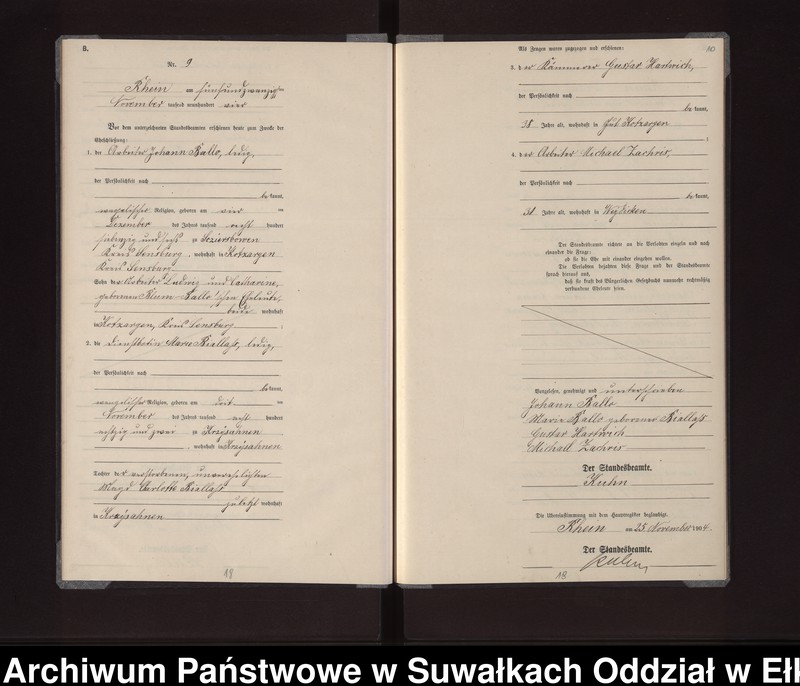 B.
Nr. 9
Rhein am fünfundzwanzigsten
November tausend neunhundert vier
Vor dem unterzeichneten Standesbeamten erschienen heute zum Zwecke der
Eheschließung:
1. der Arbeiter Johann Kallo, ledig,
der Persönlichkeit nach
be kannt,
evangelischer Religion, geboren am vier ten
Dezember des Jahres tausend acht hundert
siebzig und sechs zu
Kreis Sensburg, wohnhaft in Kotzargen
Kreis Sensburg
Sohn des Arbeiter Ludwig und Catharine,
geborenen Kallo'schen Eheleute,
beide wohnhaft
in Kotzargen, Kreis Sensburg ;
2. die Dienstbotin Marie Biallaß, ledig,
der Persönlichkeit nach
be kannt,
evangelischer Religion, geboren am dritten
November des Jahres tausend acht hundert
achtzig und zwei zu Krzysahnen
, wohnhaft in Krzysahnen
Tochter der verstorbenen, unverehelichten
Magd Carlotte Biallaß
zuletzt wohnhaft
in Krzysahnen
19
Als Zeugen waren zugezogen und erschienen:
10
3. der Kämmerer Gustav Hartwich,
der Persönlichkeit nach
be kannt,
38 Jahre alt, wohnhaft in Gut Kotzargen
;
4. der Arbeiter Michael Zachris,
der Persönlichkeit nach
be kannt,
31 Jahre alt, wohnhaft in Weydicken
Der Standesbeamte richtete an die Verlobten einzeln und nach
einander die Frage:
ob sie die Ehe mit einander eingehen wollen.
Die Verlobten bejahten diese Frage und der Standesbeamte
sprach hierauf aus,
daß sie kraft des Bürgerlichen Gesetzbuchs nunmehr rechtmäßig
verbundene Eheleute seien.
Vorgelesen, genehmigt und unterschrieben
Johann Kallo
Marie Kallo geborene Biallaß
Gustav Hartwich
Michael Zachris
Der Standesbeamte.
Kuhn
Die Übereinstimmung mit dem Hauptregister beglaubigt.
Rhein am 25. November 1904.
Der Standesbeamte.
Kuhn
18
Archiwum Państwowe w Suwałkach Oddział w Ełk